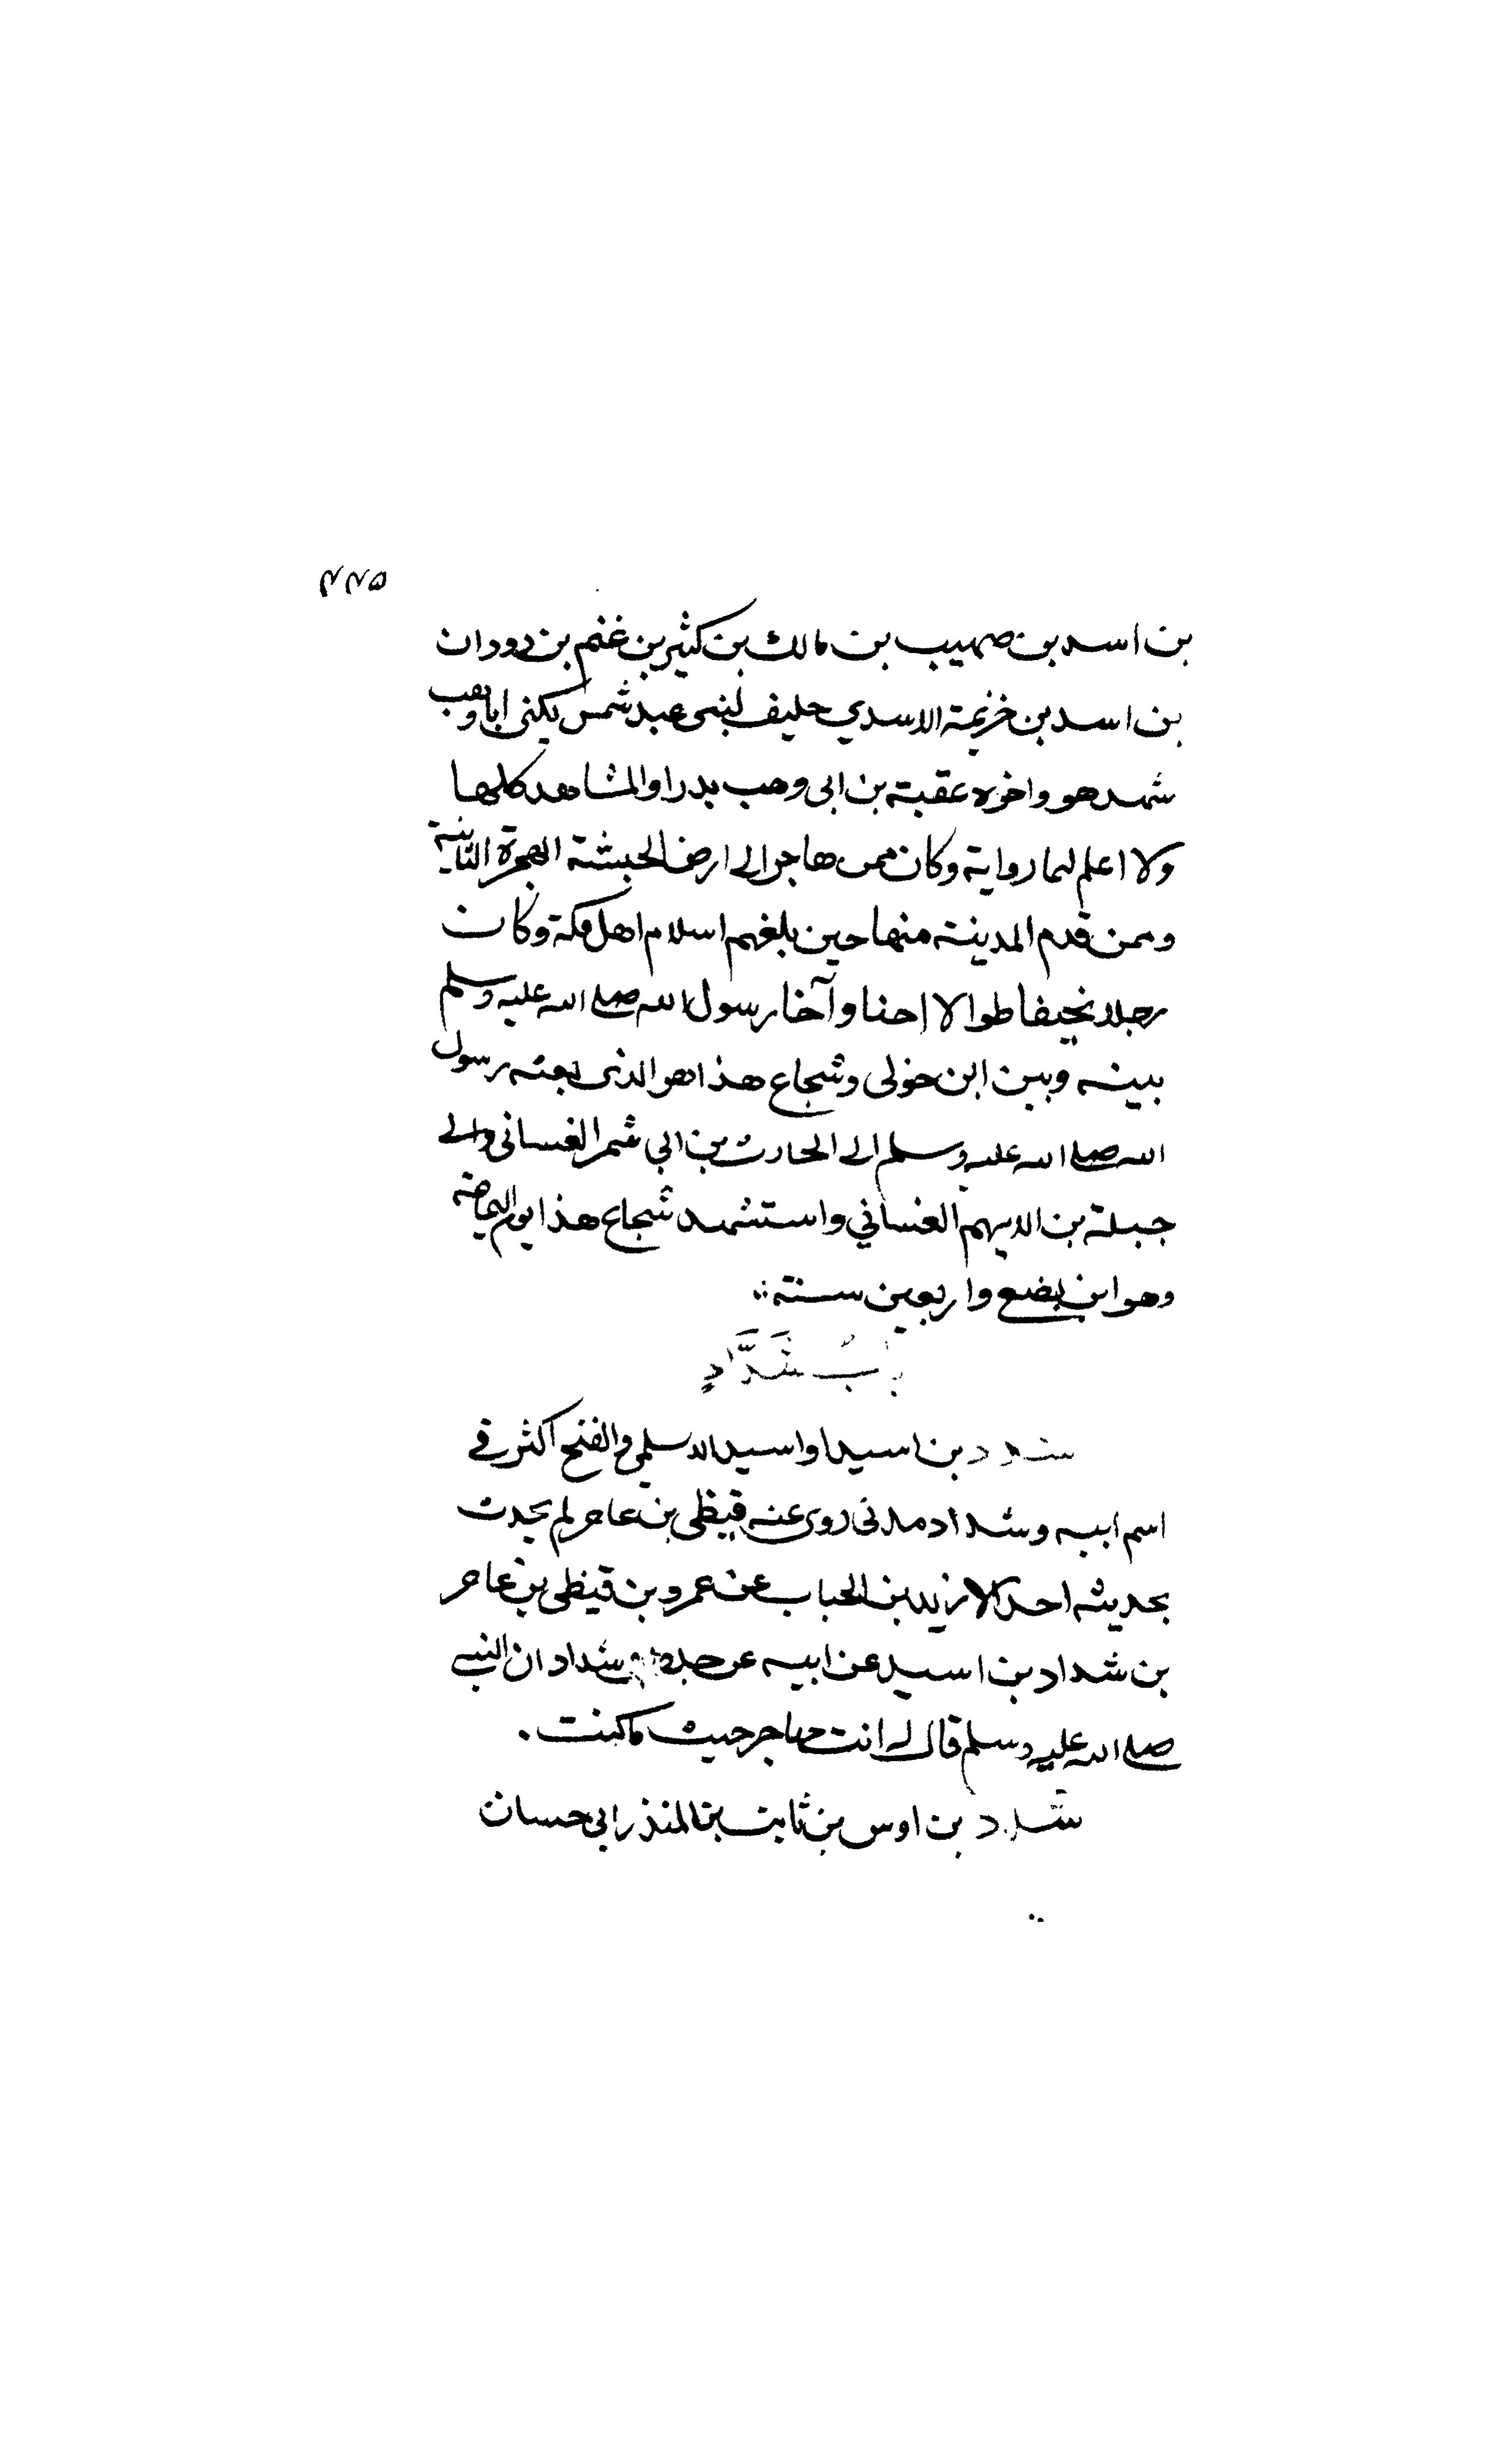 ٣٣٥
بن اسد بن صهيب بن مالك بن كثير بن غنم بن دودان
بن اسد بن خزيمة الاسدي حليف لبنى عبد شمس يكنى ابا وهب
شهد هو واخوه عقبة بن ابى وهب بدرا والمشاهد كلها
ولا اعلم لهما رواية وكان ممن هاجر الى ارض الحبشة الهجرة الثانية
وممن قدم المدينة منها حين بلغهم اسلام اهل مكة وكان
رجلا نحيفا طوالا احنا وآخا رسول الله صلى الله عليه وسلم
بينه وبين ابن خولى وشجاع هذا هو الذى بعثه رسول
الله صلى الله عليه وسلم الى الحارث بن ابي شمر الغسانى والى
جبلة بن الايهم الغساني واستشهد شجاع هذا يوم اليمامة
وهو ابن بضع واربعين سنة
بابُ شَدَّادٍ
شداد بن اسيد او اسيد الاسلمى والفتح اكثر في
اسم ابيه وشداد مدنى روى عنه قيظى بن عامر لم يحدث
بحديثه احد الا زيد بن الحباب عن عمرو بن قيظى بن عامر
بن شداد بن اسيد عن ابيه عن جده شداد ان النبي
صلى الله عليه وسلم قال له انت مهاجر حيث ما كنت .
شداد بن اوس بن ثابت بن المنذر ابي حسان